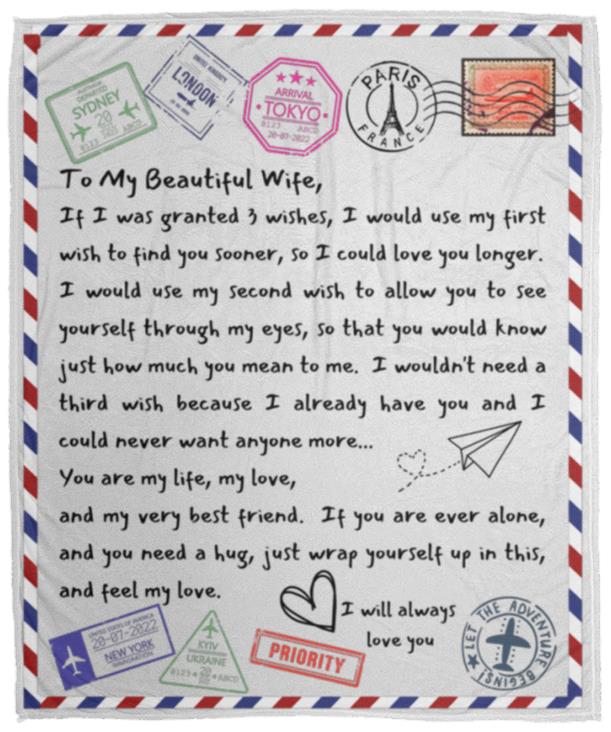 AUSTRALIA
DEPARTED
SYDNEY
20
8123 ABCD
UNITED KINGDOM
LONDON
ARRIVAL
TOKYO
8123 ABCD
20-07-2022
PARIS
FRANCE
To My Beautiful Wife,
If I was granted 3 wishes, I would use my first
wish to find you sooner, so I could love you longer.
I would use my second wish to allow you to see
yourself through my eyes, so that you would know
just how much you mean to me. I wouldn't need a
third wish because I already have you and I
could never want anyone more...
You are my life, my love,
and my very best friend. If you are ever alone,
and you need a hug, just wrap yourself up in this,
and feel my love.
I will always
love you
UNITED STATES OF AMERICA
20-07-2022
NEW YORK
IMMIGRATION
KYIV
UKRAINE
20
8123 ABCD
PRIORITY
LET THE ADVENTURE BEGINS!